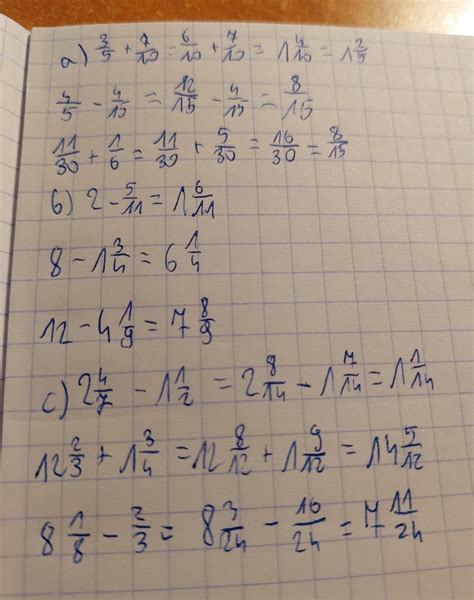 a) 3/5 + 7/10 = 6/10 + 7/10 = 1 4/10 = 1 2/5
4/5 - 4/15 = 12/15 - 4/15 = 8/15
11/30 + 1/6 = 11/30 + 5/30 = 16/30 = 8/15
b) 2 - 5/11 = 1 6/11
8 - 1 3/4 = 6 1/4
12 - 4 1/9 = 7 8/9
c) 2 4/7 - 1 1/2 = 2 8/14 - 1 7/14 = 1 1/14
12 2/3 + 1 3/4 = 12 8/12 + 1 9/12 = 14 5/12
8 1/8 - 2/3 = 8 3/24 - 16/24 = 7 11/24